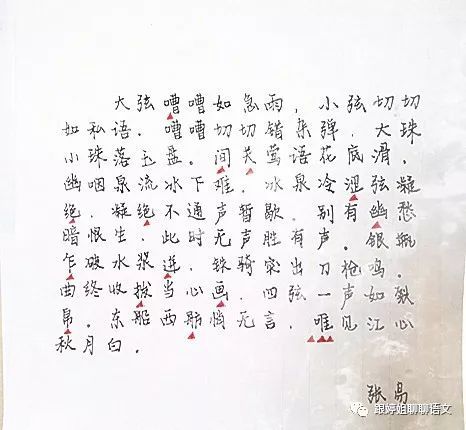 大弦嘈嘈如急雨，小弦切切
如私语。嘈嘈切切错杂弹，大珠
小珠落玉盘。间关莺语花底滑，
幽咽泉流冰下难。冰泉冷涩弦凝
绝，凝绝不通声暂歇。别有幽愁
暗恨生，此时无声胜有声。银瓶
乍破水浆迸，铁骑突出刀枪鸣。
曲终收拨当心画，四弦一声如裂
帛。东船西舫悄无言，唯见江心
秋月白。
张易
跟婷姐聊聊语文